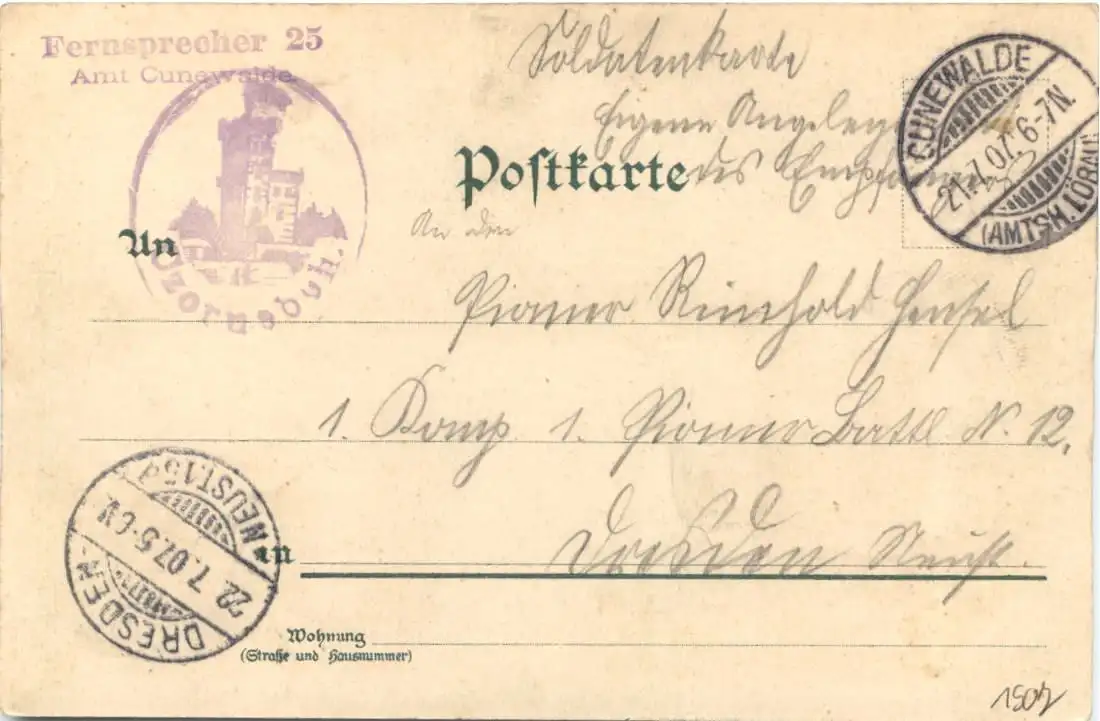 Fernsprecher 25
Amt Cunewalde.
Czorneboh.
Soldatenkarte
Eigene Angelege
des Empfängers
Postkarte
CUNEWALDE
21.7.07. 6-7N.
(AMTSH. LÖBAU)
An
An den
Pionier Reinhold Hensel
1. Komp 1. Pionier Battl N. 12.
in
Dresden Neust.
DRESDEN-NEUST. 15d
22.7.07. 5-6V.
Wohnung
(Straße und Hausnummer)
1907